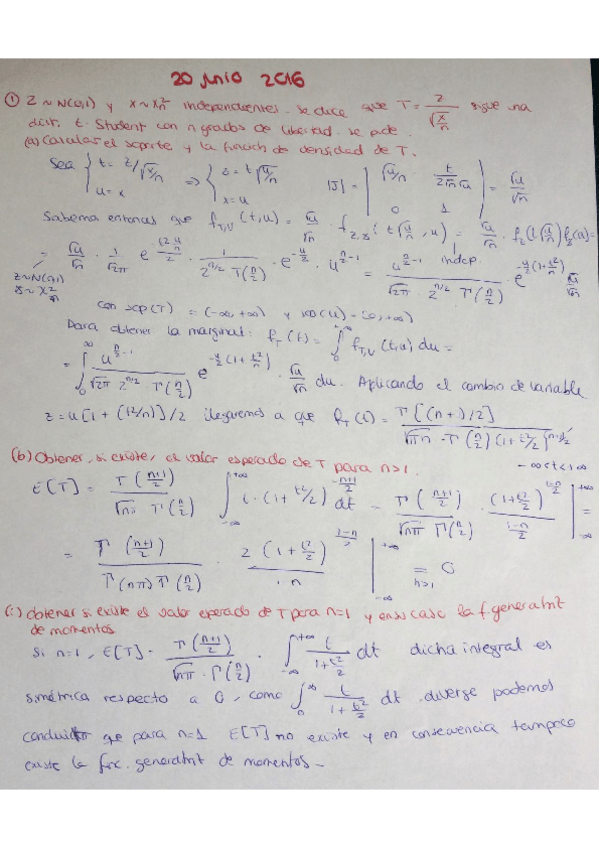 20 Junio 2016
① Z ~ N(0,1) y X ~ χ²n independientes. se dice que T = Z / √(X/n) sigue una
distr. t-Student con n grados de libertad. se pide.
(a) Calcular el soporte y la función de densidad de T.
Sea { t = z/√(x/n) ; u = x ⇒ { z = t√(u/n) ; x = u |J| = | √u/√n t/(2√n√u) ; 0 1 | = √u/√n
Sabemos entonces que f_{T,U}(t,u) = √u/√n · f_{Z,X}(t√(u/n), u) = indep √u/√n · f_Z(t√(u/n)) f_X(u) =
= √u/√n · 1/√2π e · 1/(2^{n/2} Γ(n/2)) · e^{-u/2} · u^{n/2-1} = u^{n/2-1} / (√2π · 2^{n/2} Γ(n/2)) · e^{-u/2(1+t²/n)} √u/√n
Z~N(0,1)
X~χ²n
con sop(T) = (-∞,+∞) y sop(U) = (0,+∞)
Para obtener la marginal: f_T(t) = ∫ f_{T,U}(t,u) du =
= ∫₀^∞ u^{n/2-1} / (√2π 2^{n/2} · Γ(n/2)) e^{-u/2(1+t²/n)} · √u/√n du. Aplicando el cambio de variable
z = u[1+(t²/n)]/2 llegaremos a que f_T(t) = Γ[(n+1)/2] / (√πn · Γ(n/2) (1+t²/2)^{(n+1)/2})
-∞<t<+∞
(b) Obtener, si existe, el valor esperado de T para n>1.
E[T] = Γ(n+1/2) / (√nπ Γ(n/2)) ∫_{-∞}^{+∞} t·(1+t²/2)^{-(n+1)/2} dt = Γ(n+1/2) / (√nπ Γ(n/2)) · (1+t²/2)^{(1-n)/2} / ((1-n)/2) |_{-∞}^{+∞} =
= Γ(n+1/2) / (Γ(nπ) Γ(n/2)) · 2(1+t²/2)^{(1-n)/2} / (1-n) |_{-∞}^{+∞} =_{n>1} 0
(c) obtener si existe el valor esperado de T para n=1 y en su caso la f generatriz
de momentos
Si n=1, E[T] = Γ(n+1/2) / (√nπ · Γ(n/2)) · ∫_{-∞}^{+∞} t/(1+t²/2) dt dicha integral es
simétrica respecto a 0, como ∫₀^∞ t/(1+t²/2) dt diverge podemos
que para n=1 E[T] no existe y en consecuencia tampoco
existe la func. generatriz de momentos.